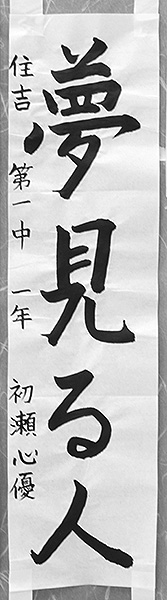 夢見る人
住吉 第一中 一年 初瀬心優